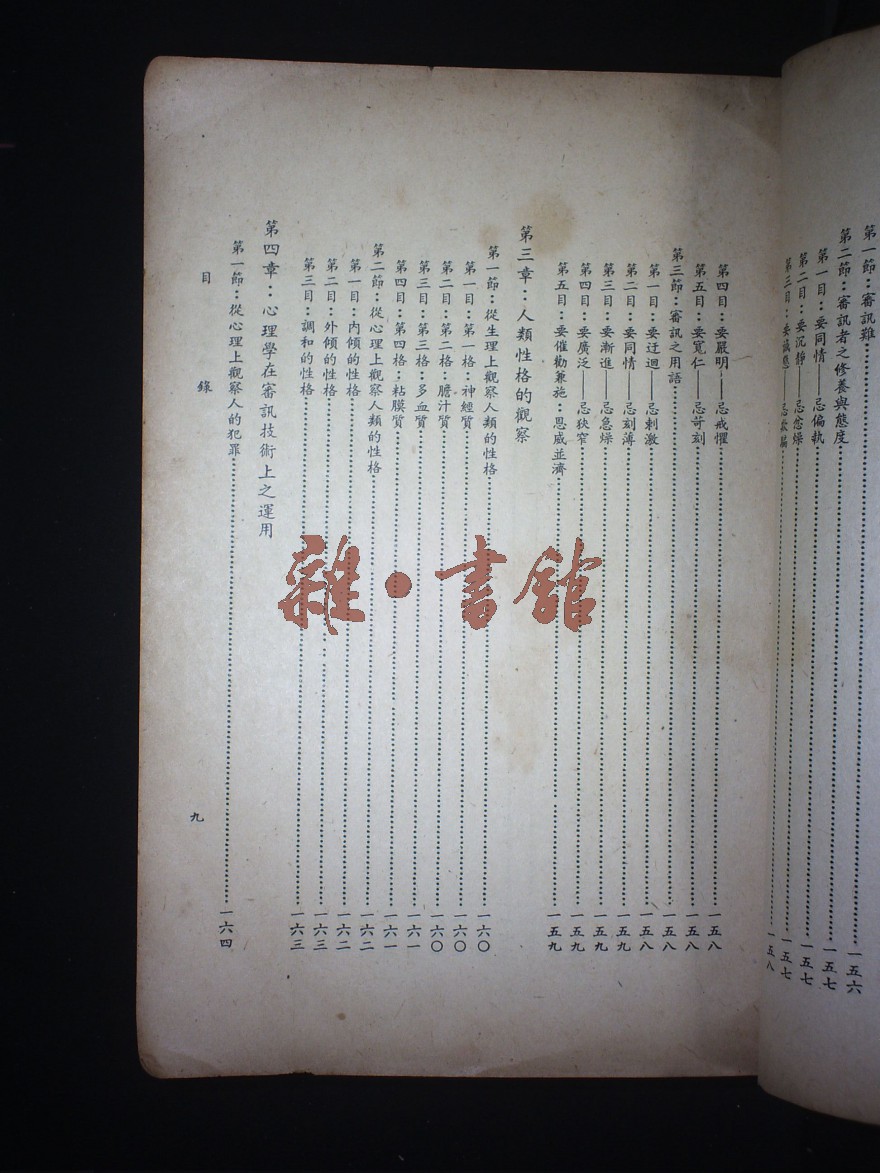 第一節：審訊難⋯⋯一五六
第二節：審訊者之修養與態度⋯⋯一五七
第一目：要同情——忌偏執⋯⋯一五七
第二目：要沉靜——忌忿燥⋯⋯一五七
第三目：要⋯⋯一五八
第四目：要嚴明——忌戒懼⋯⋯一五八
第五目：要寬仁——忌苛刻⋯⋯一五八
第三節：審訊之用語⋯⋯一五八
第一目：要迂迴——忌刺激⋯⋯一五八
第二目：要同情——忌刻薄⋯⋯一五九
第三目：要漸進——忌急燥⋯⋯一五九
第四目：要廣泛——忌狹窄⋯⋯一五九
第五目：要催勸兼施：恩威並濟⋯⋯一五九
第三章：人類性格的觀察
第一節：從生理上觀察人類的性格⋯⋯一六〇
第一目：第一格：神經質⋯⋯一六〇
第二目：第二格：膽汁質⋯⋯一六〇
第三目：第三格：多血質⋯⋯一六一
第四目：第四格：粘膜質⋯⋯一六一
第二節：從心理上觀察人類的性格⋯⋯一六二
第一目：內傾的性格⋯⋯一六二
第二目：外傾的性格⋯⋯一六三
第三目：調和的性格⋯⋯一六三
第四章：心理學在審訊技術上之運用
第一節：從心理上觀察人的犯罪⋯⋯一六四
目錄
九
雜·書館